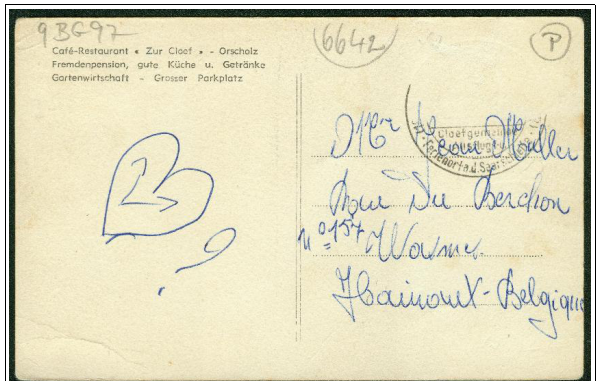 9BG97
6642
P
Café-Restaurant « Zur Cloef » - Orscholz
Fremdenpension, gute Küche u. Getränke
Gartenwirtschaft - Grosser Parkplatz
Cloefgemeinde
Mr Léon Muller
Rue Du Berchon
n° 157 Wasmes
Hainaut-Belgique
?